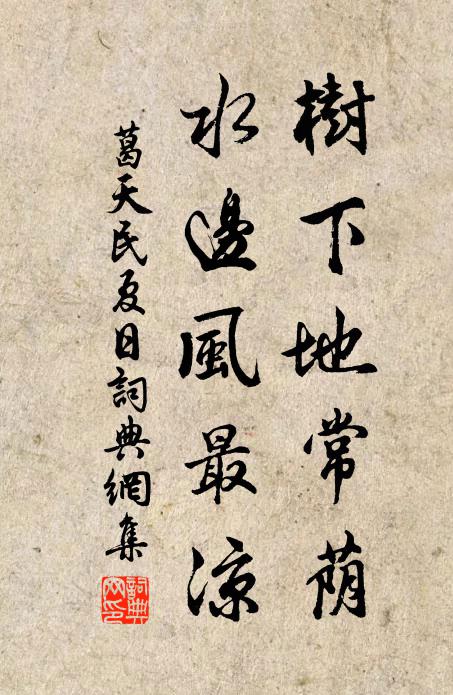 樹下地常荫
水邊風最涼
葛天民夏日詞典網集
詞典网印